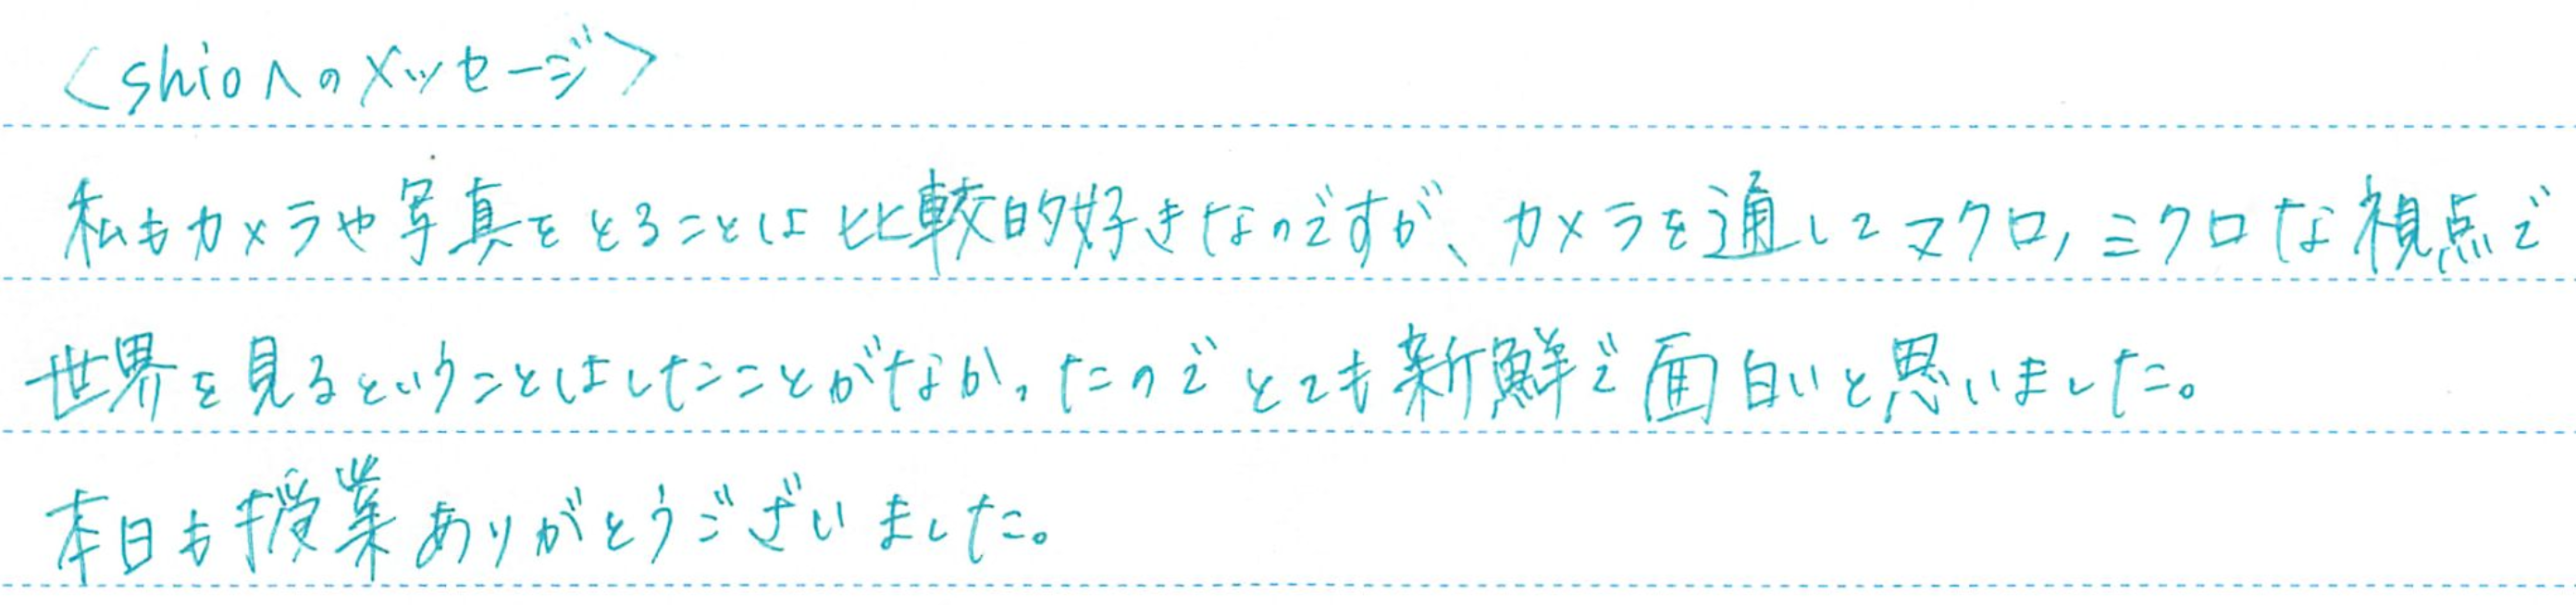 <shioへのメッセージ>
私もカメラや写真をとることは比較的好きなのですが、カメラを通してマクロ,ミクロな視点で
世界を見るということはしたことがなかったのでとても新鮮で面白いと思いました。
本日も授業ありがとうございました。